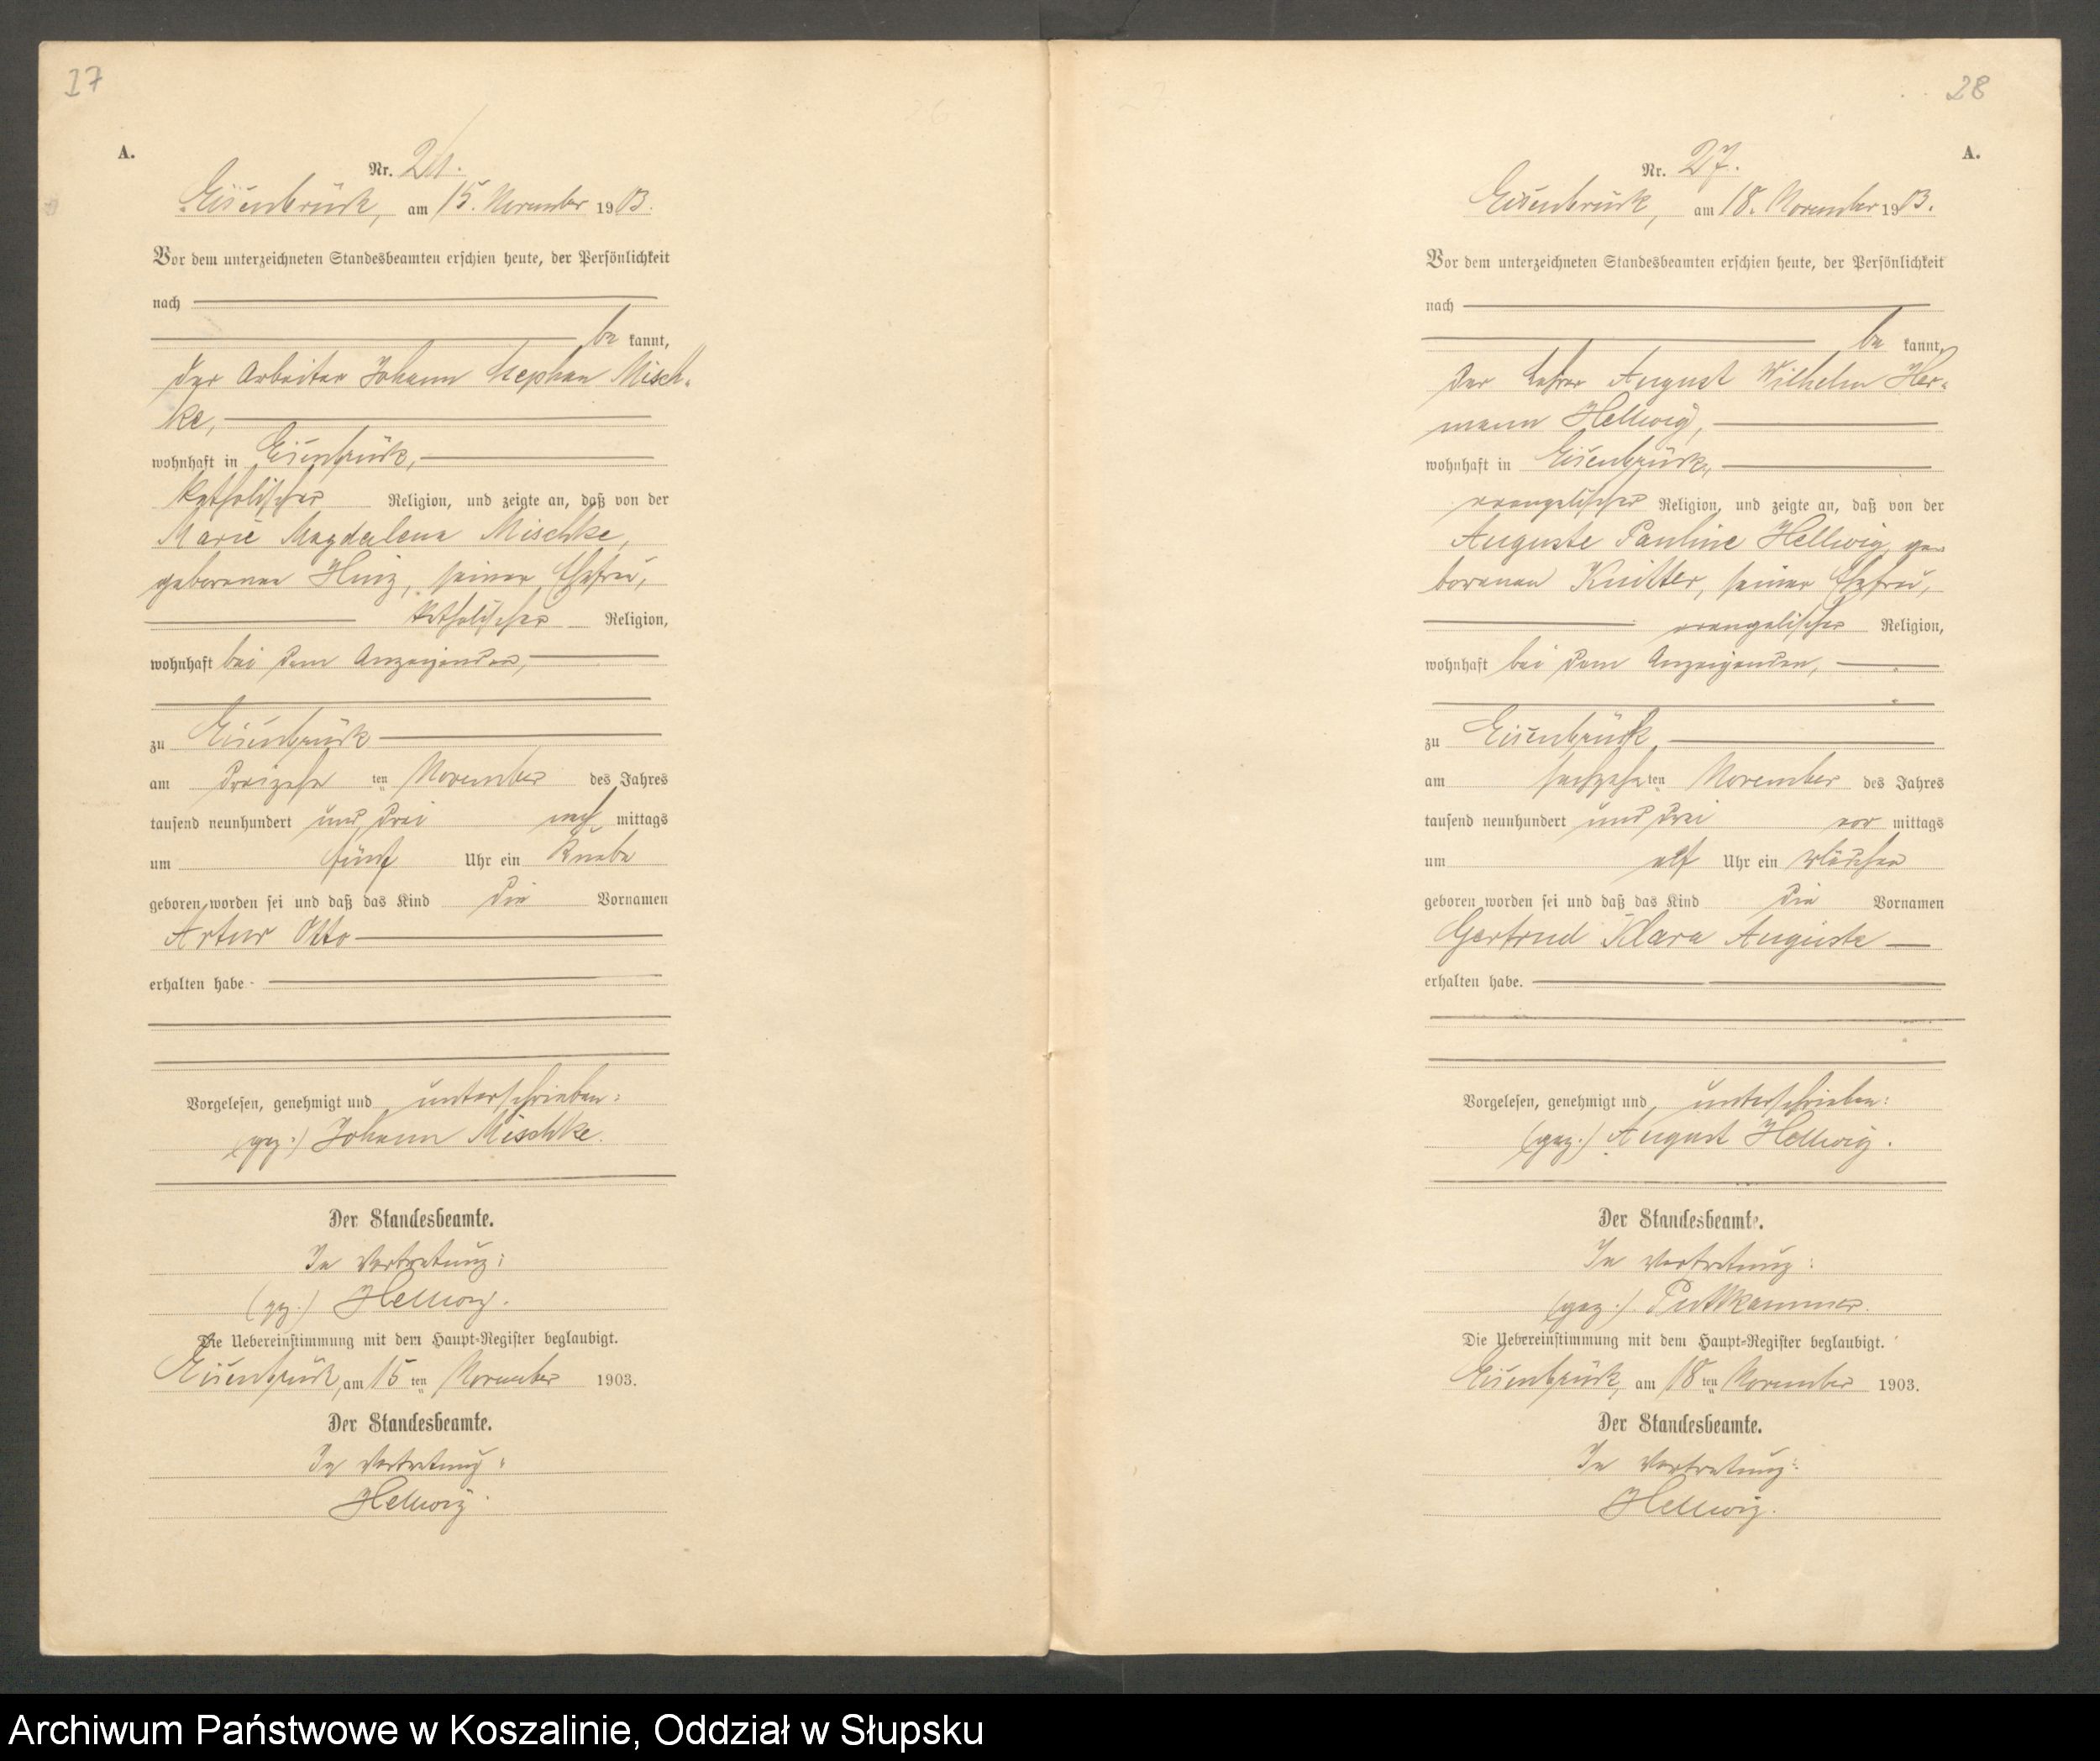 17
A.
Nr. 26.
Eisenbrück, am 15. November 1903.
Vor dem unterzeichneten Standesbeamten erschien heute, der Persönlichkeit
nach
be kannt,
der Arbeiter Johann Stephan Misch-
ke,
wohnhaft in Eisenbrück,
katholischer Religion, und zeigte an, daß von der
Marie Magdalena Mischke,
geborenen Hinz, seiner Ehefrau,
katholischer Religion,
wohnhaft bei dem Anzeigenden,
zu Eisenbrück
am dreizehn ten November des Jahres
tausend neunhundert und drei nach mittags
um fünf Uhr ein Knabe
geboren worden sei und daß das Kind die Vornamen
Artur Otto
erhalten habe.
Vorgelesen, genehmigt und unterschrieben:
(gez.) Johann Mischke.
Der Standesbeamte.
In Vertretung:
(gez.) Hellwig.
Die Uebereinstimmung mit dem Haupt-Register beglaubigt.
Eisenbrück, am 15 ten November 1903.
Der Standesbeamte.
In Vertretung:
Hellwig.
28
A.
Nr. 27.
Eisenbrück, am 18. November 1903.
Vor dem unterzeichneten Standesbeamten erschien heute, der Persönlichkeit
nach
be kannt,
der Lehrer August Wilhelm Her-
mann Hellwig,
wohnhaft in Eisenbrück,
evangelischer Religion, und zeigte an, daß von der
Auguste Pauline Hellwig, ge-
borenen Knitter, seiner Ehefrau,
evangelischer Religion,
wohnhaft bei dem Anzeigenden,
zu Eisenbrück,
am sechzehn ten November des Jahres
tausend neunhundert und drei vor mittags
um elf Uhr ein Mädchen
geboren worden sei und daß das Kind die Vornamen
Gertrud Klara Auguste
erhalten habe.
Vorgelesen, genehmigt und unterschrieben:
(gez.) August Hellwig.
Der Standesbeamte.
In Vertretung:
(gez.) Puttkammer.
Die Uebereinstimmung mit dem Haupt-Register beglaubigt.
Eisenbrück, am 18 ten November 1903.
Der Standesbeamte.
In Vertretung:
Hellwig.
Archiwum Państwowe w Koszalinie, Oddział w Słupsku